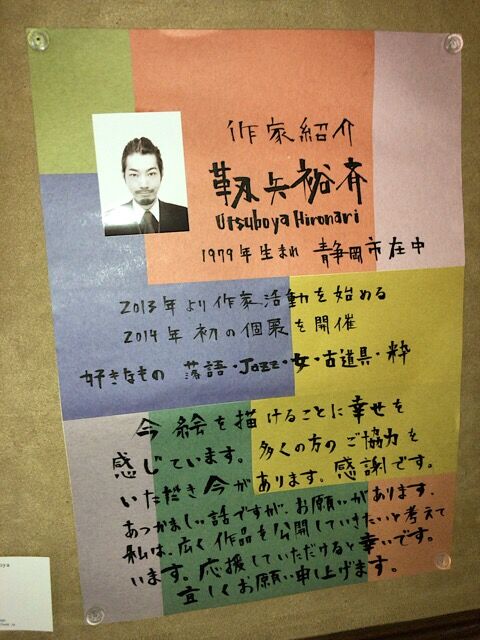 作家紹介
靱矢裕斉
Utsuboya Hironari
1979年生まれ 静岡市在中
2013年より作家活動を始める
2014年 初の個展を開催
好きなもの 落語・Jazz・女・古道具・粋
今 絵を描けることに幸せを
感じています。多くの方のご協力を
いただき今があります。感謝です。
あつかましい話ですが、お願いがあります。
私は、広く作品を公開していきたいと考えて
います。応援していただけると幸いです。
宜しくお願い申し上げます。